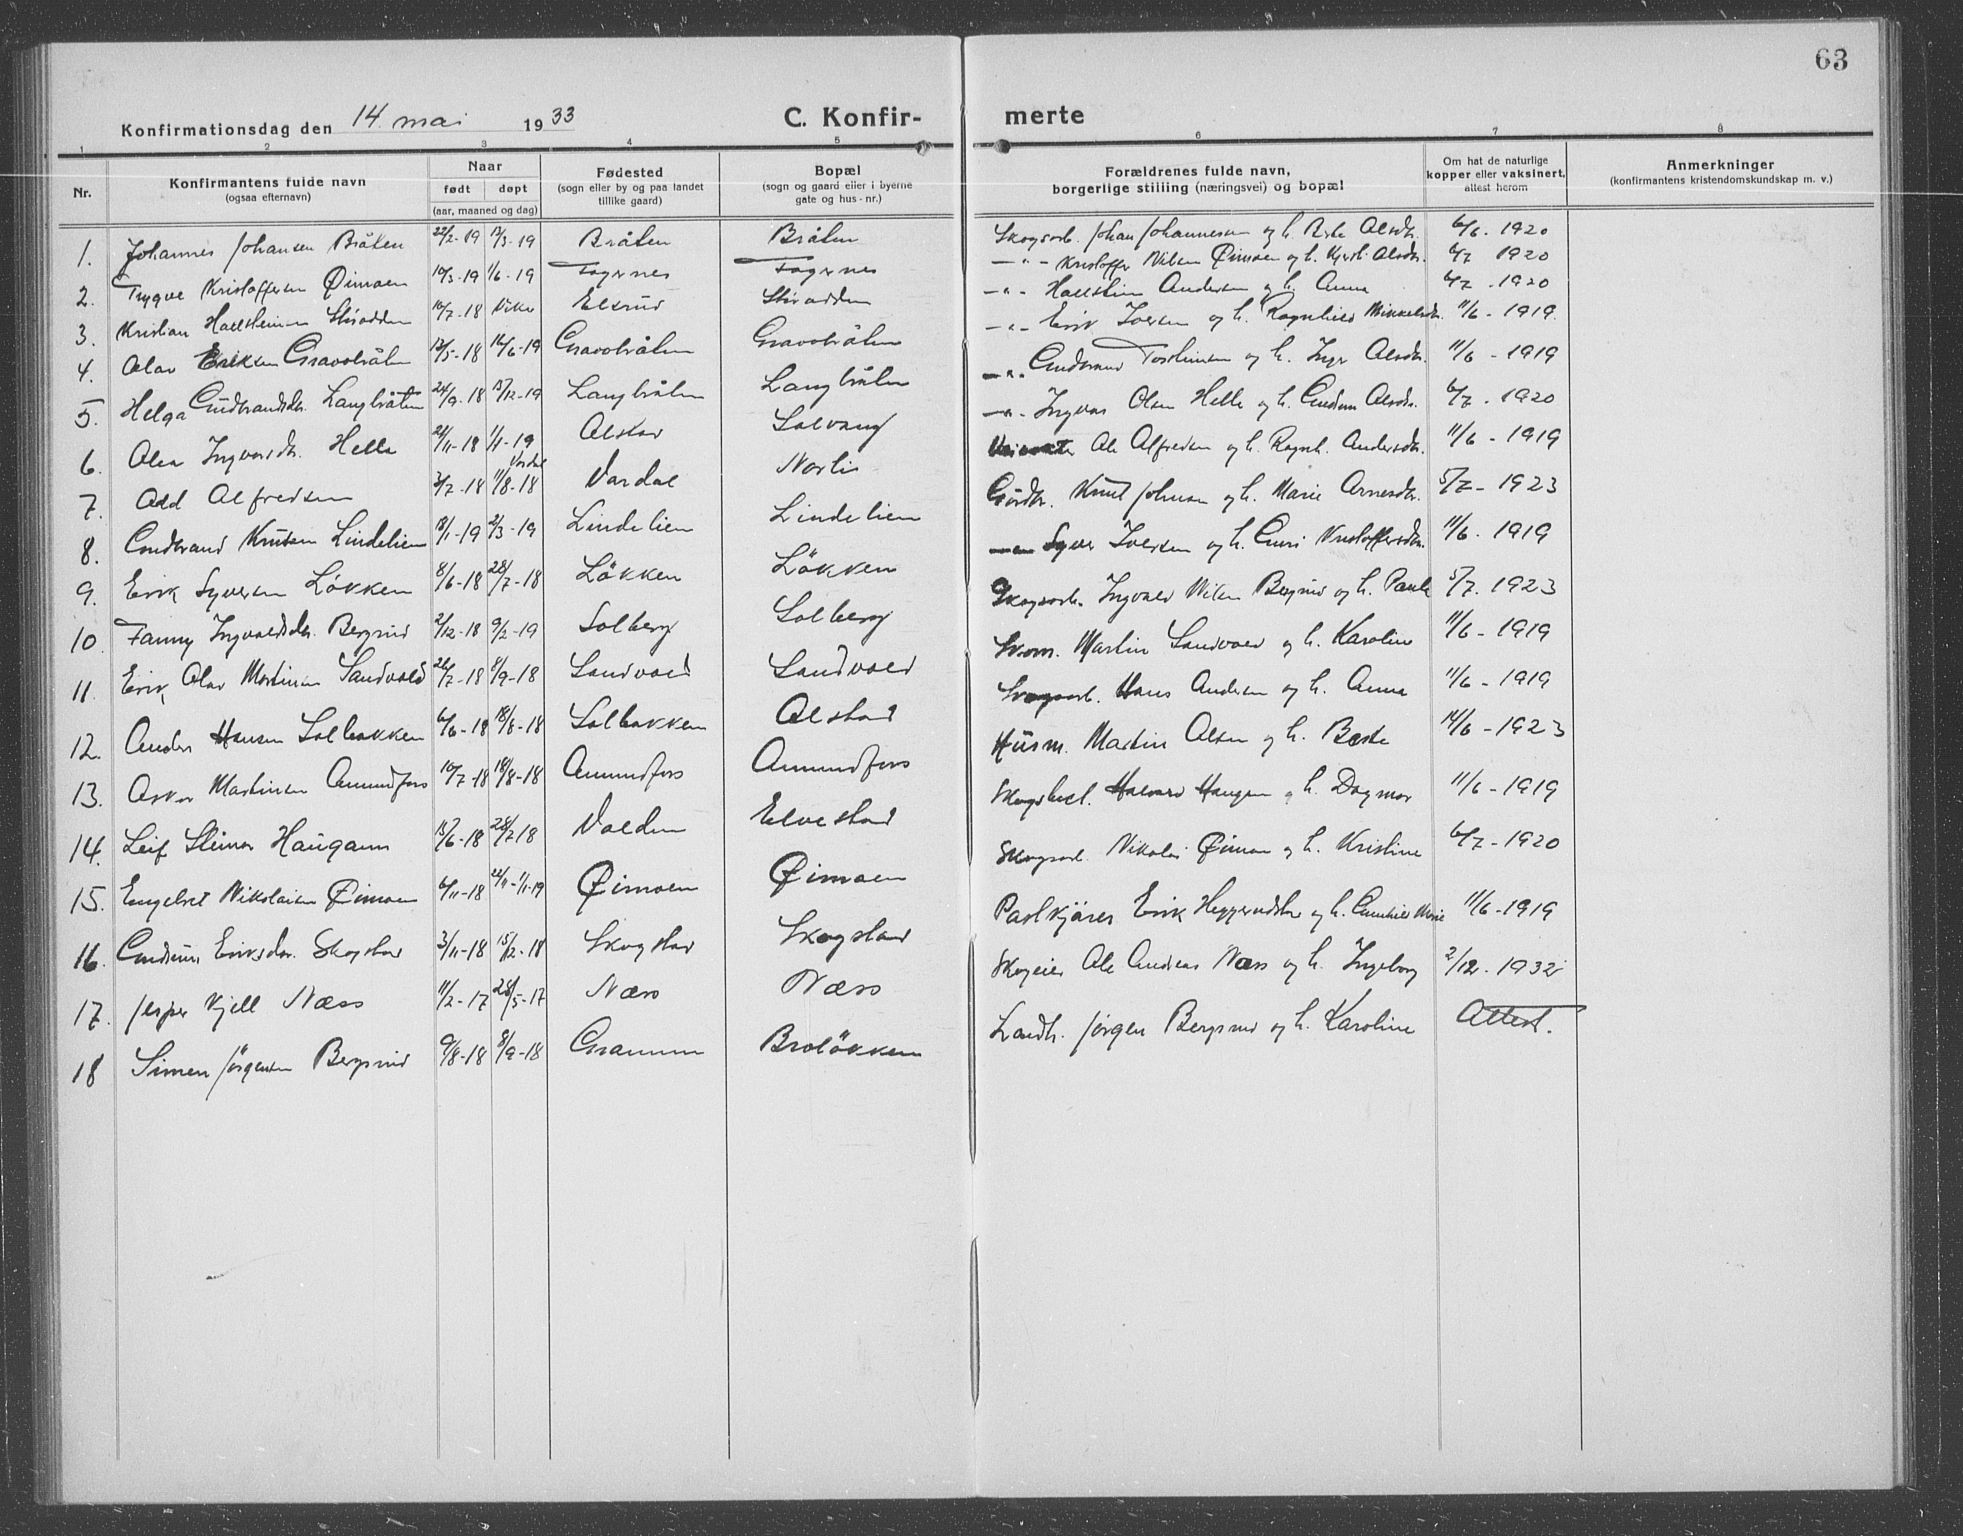 63
Konfirmationsdag den 14. mai 1933 C. Konfirmerte
1 2 3 4 5 6 7 8
Nr. Konfirmantens fulde navn (ogsaa efternavn) Naar født døpt (aar, maaned og dag) Fødested (sogn eller by og paa landet tillike gaard) Bopæl (sogn og gaard eller i byerne gate og hus-nr.) Forældrenes fulde navn, borgerlige stilling (næringsvei) og bopæl Om hat de naturlige kopper eller vaksinert, attest herom Anmerkninger (konfirmantens kristendomskundskap m. v.)
1. Johannes Johansen Bråten 22/2-19 /3-19 Bråten Bråten Skogsarb. Johan Johannesen og h. Olsdtr. 6/6. 1920
2. Trygve Kristoffersen Øimoen 10/3-19 1/6-19 Fagernes Fagernes -"- Kristoffer Nilsen Øimoen og h. Olsdtr. 6/7 1920
3. Kristian Hallsteinsen 10/7-18 Elsrud -"- Hallstein Andersen og h. Anna 6/7. 1920
4. Olav Eriksen Gravobråten /5-18 /6-19 Gravobråten Gravobråten -"- Erik Iversen og h. Ragnhild Mikkelsdtr. 11/6 - 1919.
5. Helga Gudbrandsdtr. Langbråten 24/9-18 /12-19 Langbråten Langbråten -"- Gudbrand Torsteinsen og h. Inger Olsdtr. 11/6 - 1919
6. Olea Ingvarsdtr. Helle /11-18 1/1-19 Solvang -"- Ingvar Olsen Helle og h. Gudrun Olsdtr. 6/7. 1920
7. Odd Alfredsen 3/7-18 11/8-18 Vardal Vardal Norli Ole Alfredsen og h. Ragnh. Andersdtr. 11/6 - 1919
8. Gudbrand Knutsen Lindelien 18/1-19 2/3-19 Lindelien Lindelien Gårdbr. Knut Johnsen og h. Marie Arnesdtr. 5/7 - 1923
9. Erik Syversen Løkken 8/6-18 28/7-18 Løkken Løkken Syver Iversen og h. Guri Kristoffersdtr. 11/6. 1919
10 Fanny Ingvaldsdtr. Bergsrud 2/12-18 9/2-19 Solberg Solberg Skogsarb. Ingvald Nilsen Bergsrud og h. Paula 5/7. 1923
11. Erik Olav Martinsen Sandvold 26/7-18 8/9-18 Sandvold Sandvold Martin Sandvold og h. Karoline 11/6 - 1919
12. Anders Hansen Solbakken 6/6-18 18/8-18 Solbakken Olstad Skogsarb. Hans Andersen og h. Anna 11/6 - 1919
13. Martinsen Amundfoss 10/7-18 18/8-18 Amundfoss Amundfoss Husm. Martin Olsen og h. Berte 14/6 - 1923
14. Leif Steinar Haugann /6-18 28/7 18 Elvestad Halvard Haugen og h. Dagmar 11/6 - 1919
15. Engebret Nikolaisen Øimoen 6/11-18 /11-1/1-19 Øimoen Øimoen Skogsarb. Nikolai Øimoen og h. Kristine 6/7 - 1920
16. Gudrun Eriksdtr. Skogstad 3/11-18 15/2-18 Skogstad Skogstad Erik og h. Marie 11/6 - 1919
17. Jesper Kjell Næss 11/2-17 28/5-17 Næss Næss Skogeier Ole Andreas Næss og h. Ingeborg 2/12. 1932
18 Simen Jørgensen Bergsrud 9/8-18 8/9-18 Broløkken Landh. Jørgen Bergsrud og h. Karoline Attest.